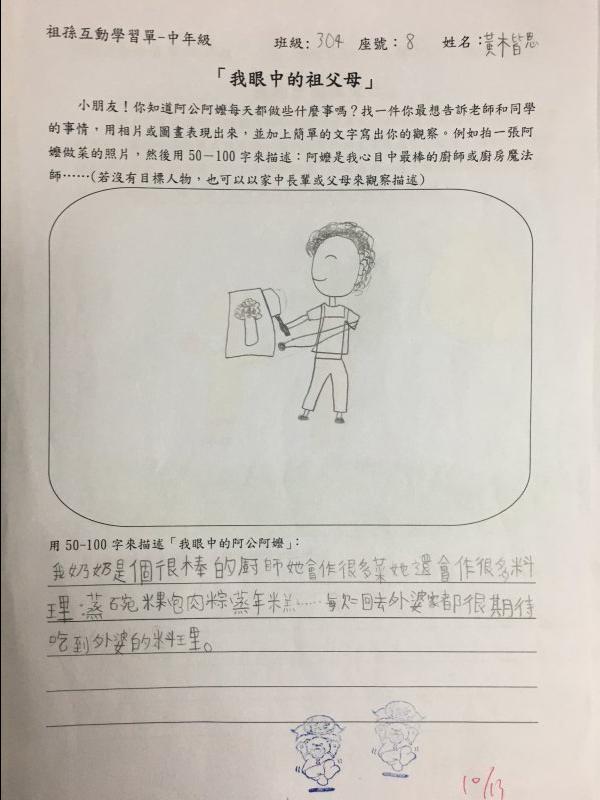 祖孫互動學習單-中年級 班級: 304 座號: 8 姓名:黃楷恩
「我眼中的祖父母」
小朋友！你知道阿公阿嬤每天都做些什麼事嗎？找一件你最想告訴老師和同學
的事情，用相片或圖畫表現出來，並加上簡單的文字寫出你的觀察。例如拍一張阿
嬤做菜的照片，然後用50－100字來描述：阿嬤是我心目中最棒的廚師或廚房魔法
師……(若沒有目標人物，也可以以家中長輩或父母來觀察描述)
用50-100字來描述「我眼中的阿公阿嬤」：
我奶奶是個很棒的廚師她會作很多菜她還會作很多料
理:蒸碗粿包肉粽蒸年糕……每次回去外婆家都很期待
吃到外婆的料理。
10/13